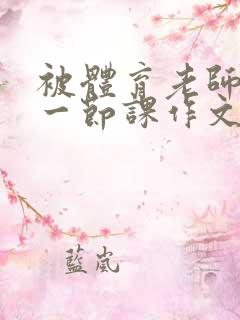 被體育老師
一節課作文
藍嵐